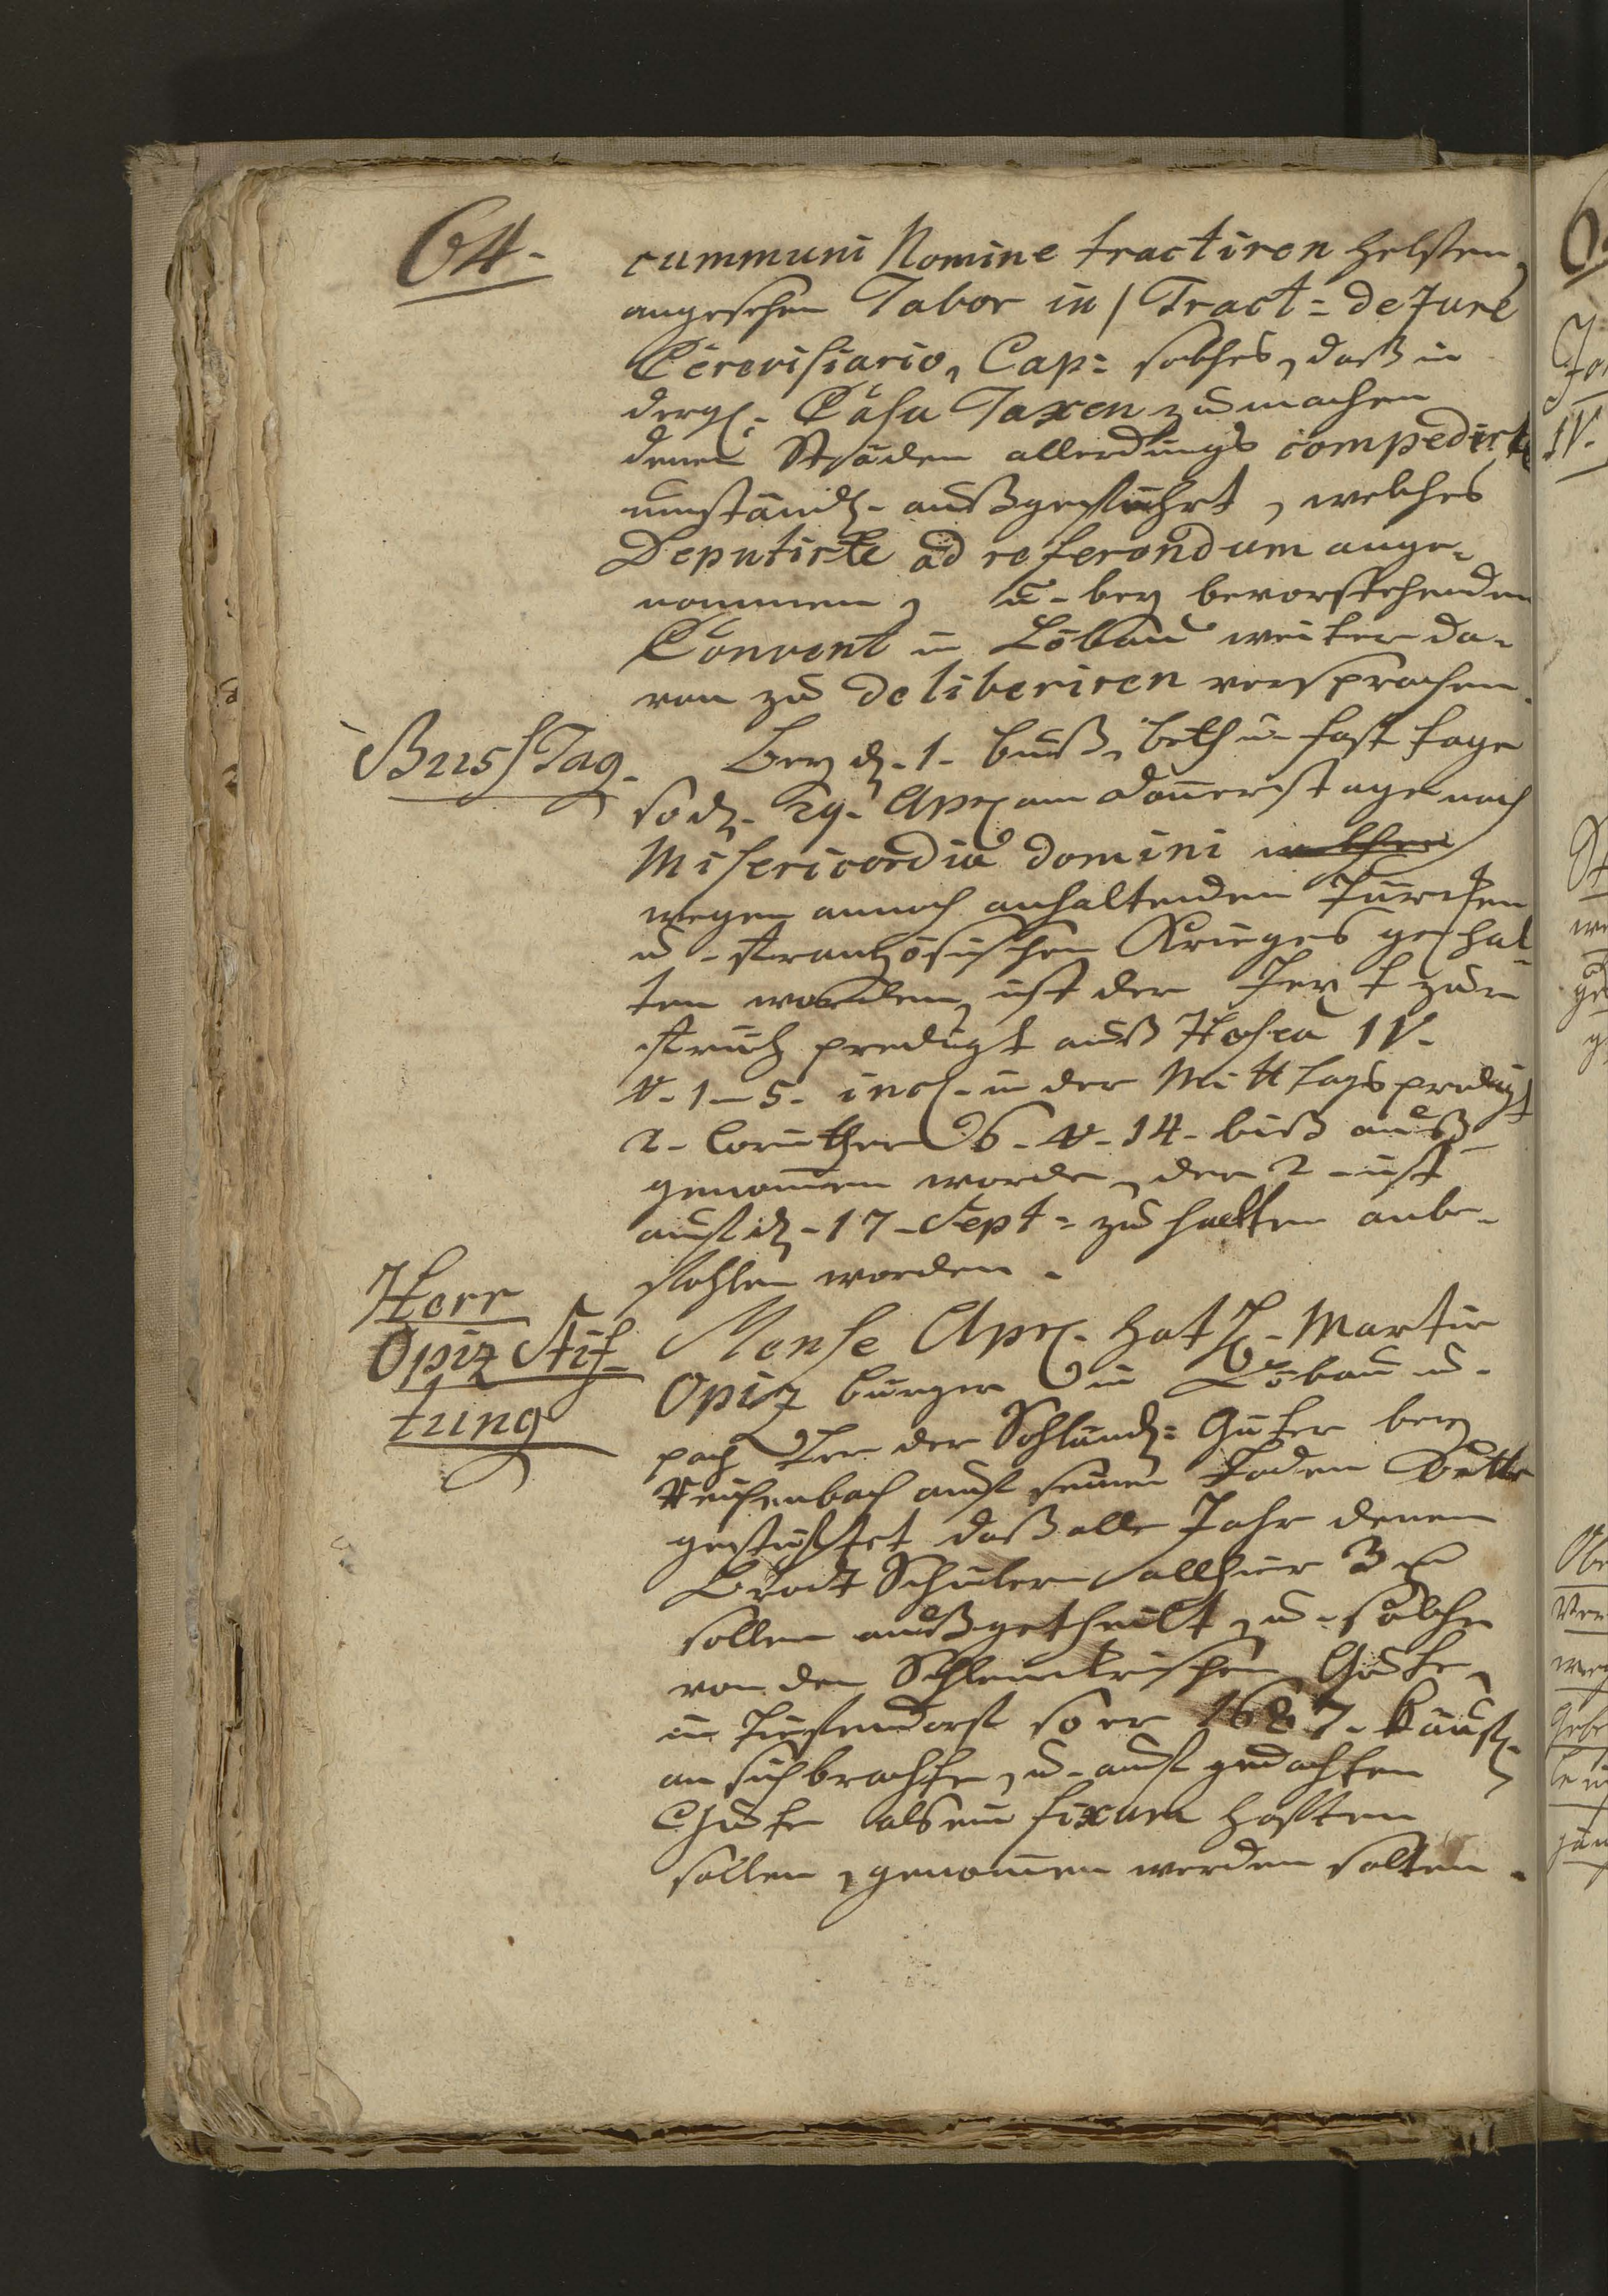 64.
cummuni Nomine tractiren helffen,
angesehen Tabor in Tract: de Jure
Cerevisiario, Cap: solches, daß in
dergl: Casu Taxen zu machen
denen Städen allerdings compedirte
umständl. außgeführt, welches
Deputirte ad referendum ange-
nommen, u. bey bevorstehenden
Convent in Löbau weiter da-
von zu deliberiren versprochen.
Buss Tag.
Bey d. 1. buß, beth u. fast tage
so d. 29. Apr. am donnerstage nach
Misericordia domini welcher
wegen annoch anhaltenden Türcken
u. frantzösischen Krieges gehal-
ten worden, ist der Text zur
früh predigt auß Hosea IV.
v. 1-5. incl. in der Mittags predigt
2. Corinther 6. v. 14. biß auß
genommen worden, der 2. ist
auf d. 17. Sept: zu halten anbe-
fohlen worden.
Herr
Opiz Stif-
tung
Mense Apr. hat H. Martin
Opiz burger in Löbau u.
pachter der Guter bey
Reichenbach auf seinen Toden bette
gestifftet daß alle Jahr denen
Brodt Schülern allhier 3
sollen außgetheilt, u. solche
von den Gute
in so er 1687. käufl.
an sich brachte, u. auf gedachten
Gute als ein fixum hafften
sollen, genommen werden solten.